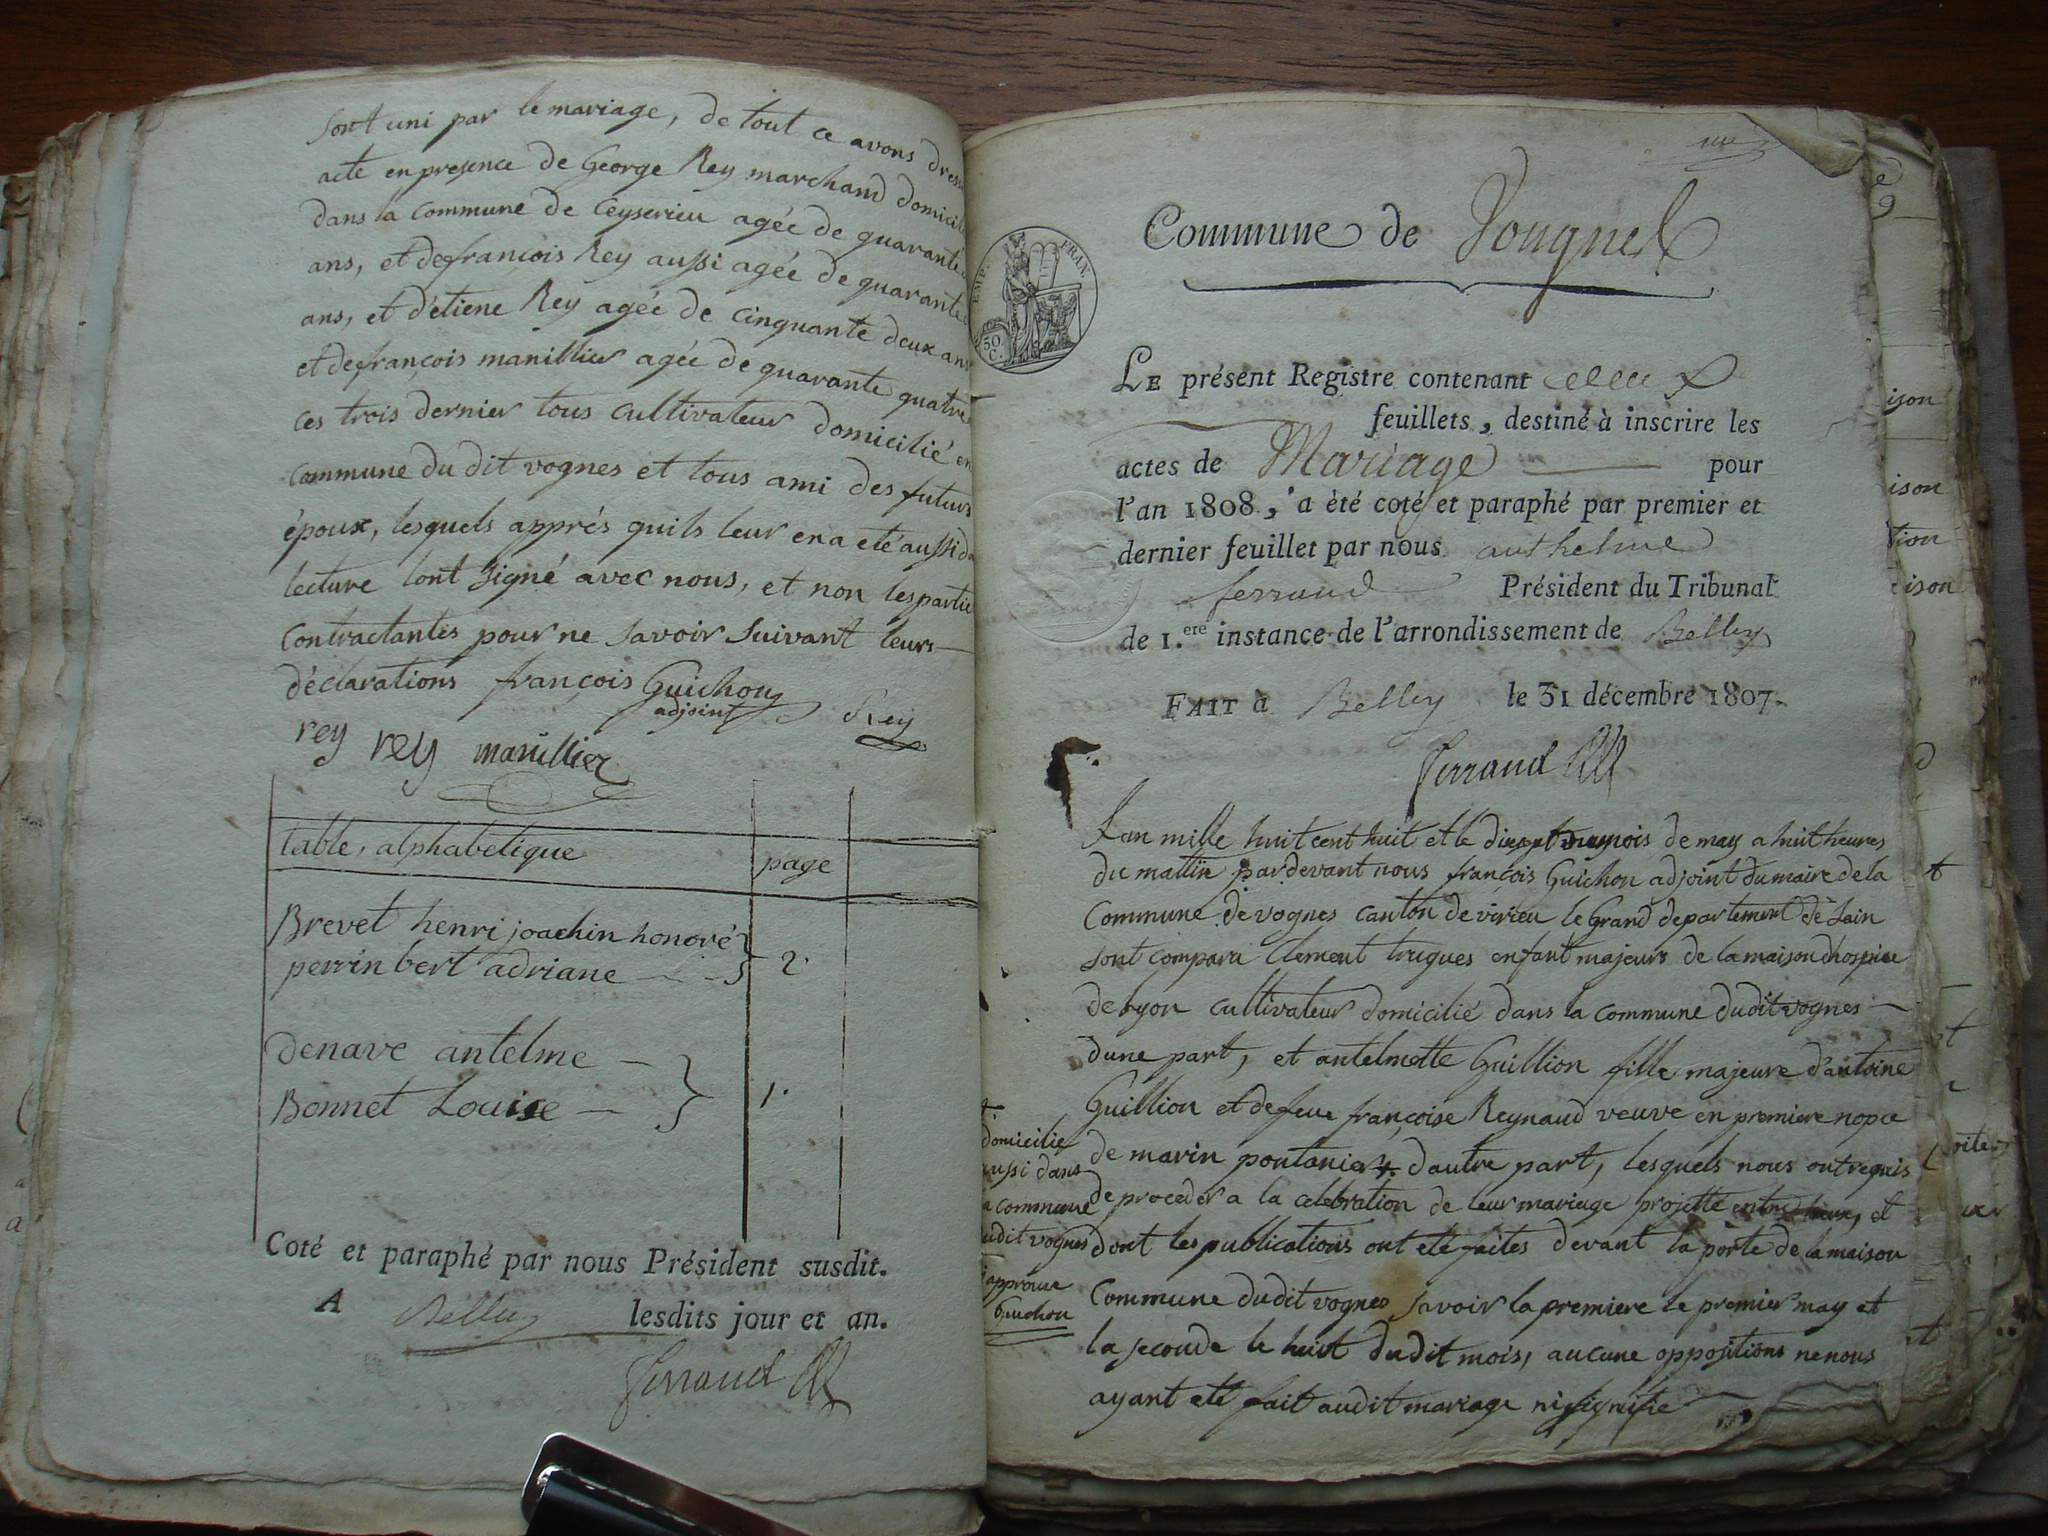 sont uni par le mariage, de tout ce avons dressé
acte en presence de George Rey marchand domicilié
dans la commune de Ceyserieu agée de quarante
ans, et de françois Rey aussi agée de quarante
ans, et d'étiene Rey agée de cinquante deux ans
et de françois manillier agée de quarante quatre
ces trois dernier tous cultivateur domicilié en
commune du dit vognes et tous ami des futurs
époux, lesquels apprés quils leur en a eté aussi
lecture lont signé avec nous, et non les partie
Contractantes pour ne savoir suivant leurs
déclarations françois Guichon
adjoint Rey
rey rey manillier
table, alphabetique page
Brevet henri joachin honoré
perrin bert adriane 2.
denave antelme
Bonnet Louise 1.
Coté et paraphé par nous Président susdit.
A Belley lesdits jour et an.
Ferrand
Commune de Vongnes
EMP. FRAN.
50
C.
LE présent Registre contenant
feuillets, destiné à inscrire les
actes de Mariage pour
l'an 1808, a été coté et paraphé par premier et
dernier feuillet par nous anthelme
ferrand Président du Tribunal
de 1.ere instance de l'arrondissement de Belley
FAIT à Belley le 31 décembre 1807.
Ferrand
Lan mille huit cent huit et le mois de may a huit heures
du mattin pardevant nous françois Guichon adjoint du maire de la
Commune de vognes canton de virieu le Grand departement de Lain
sont comparu Clement truques enfant majeurs de la maison dhospice
de lyon cultivateur domicilié dans la commune dudit vognes
dune part, et antelmette Guillion fille majeure d'antoine
Guillion et de feue françoise Reynaud veuve en premiere nopce
de marin pontanier + dautre part, lesquels nous ont requis
de proceder a la celebration de leur mariage projetté entre eux, et
dont les publications ont eté faites devant la porte de la maison
Commune dudit vognes savoir la premiere le premier may et
la seconde le huit dudit mois, aucune oppositions ne nous
ayant eté fait audit mariage ni signifie
+
domicilie
aussi dans
la commune
dudit vognes
approuve
Guichon
ison
ison
tion
ison